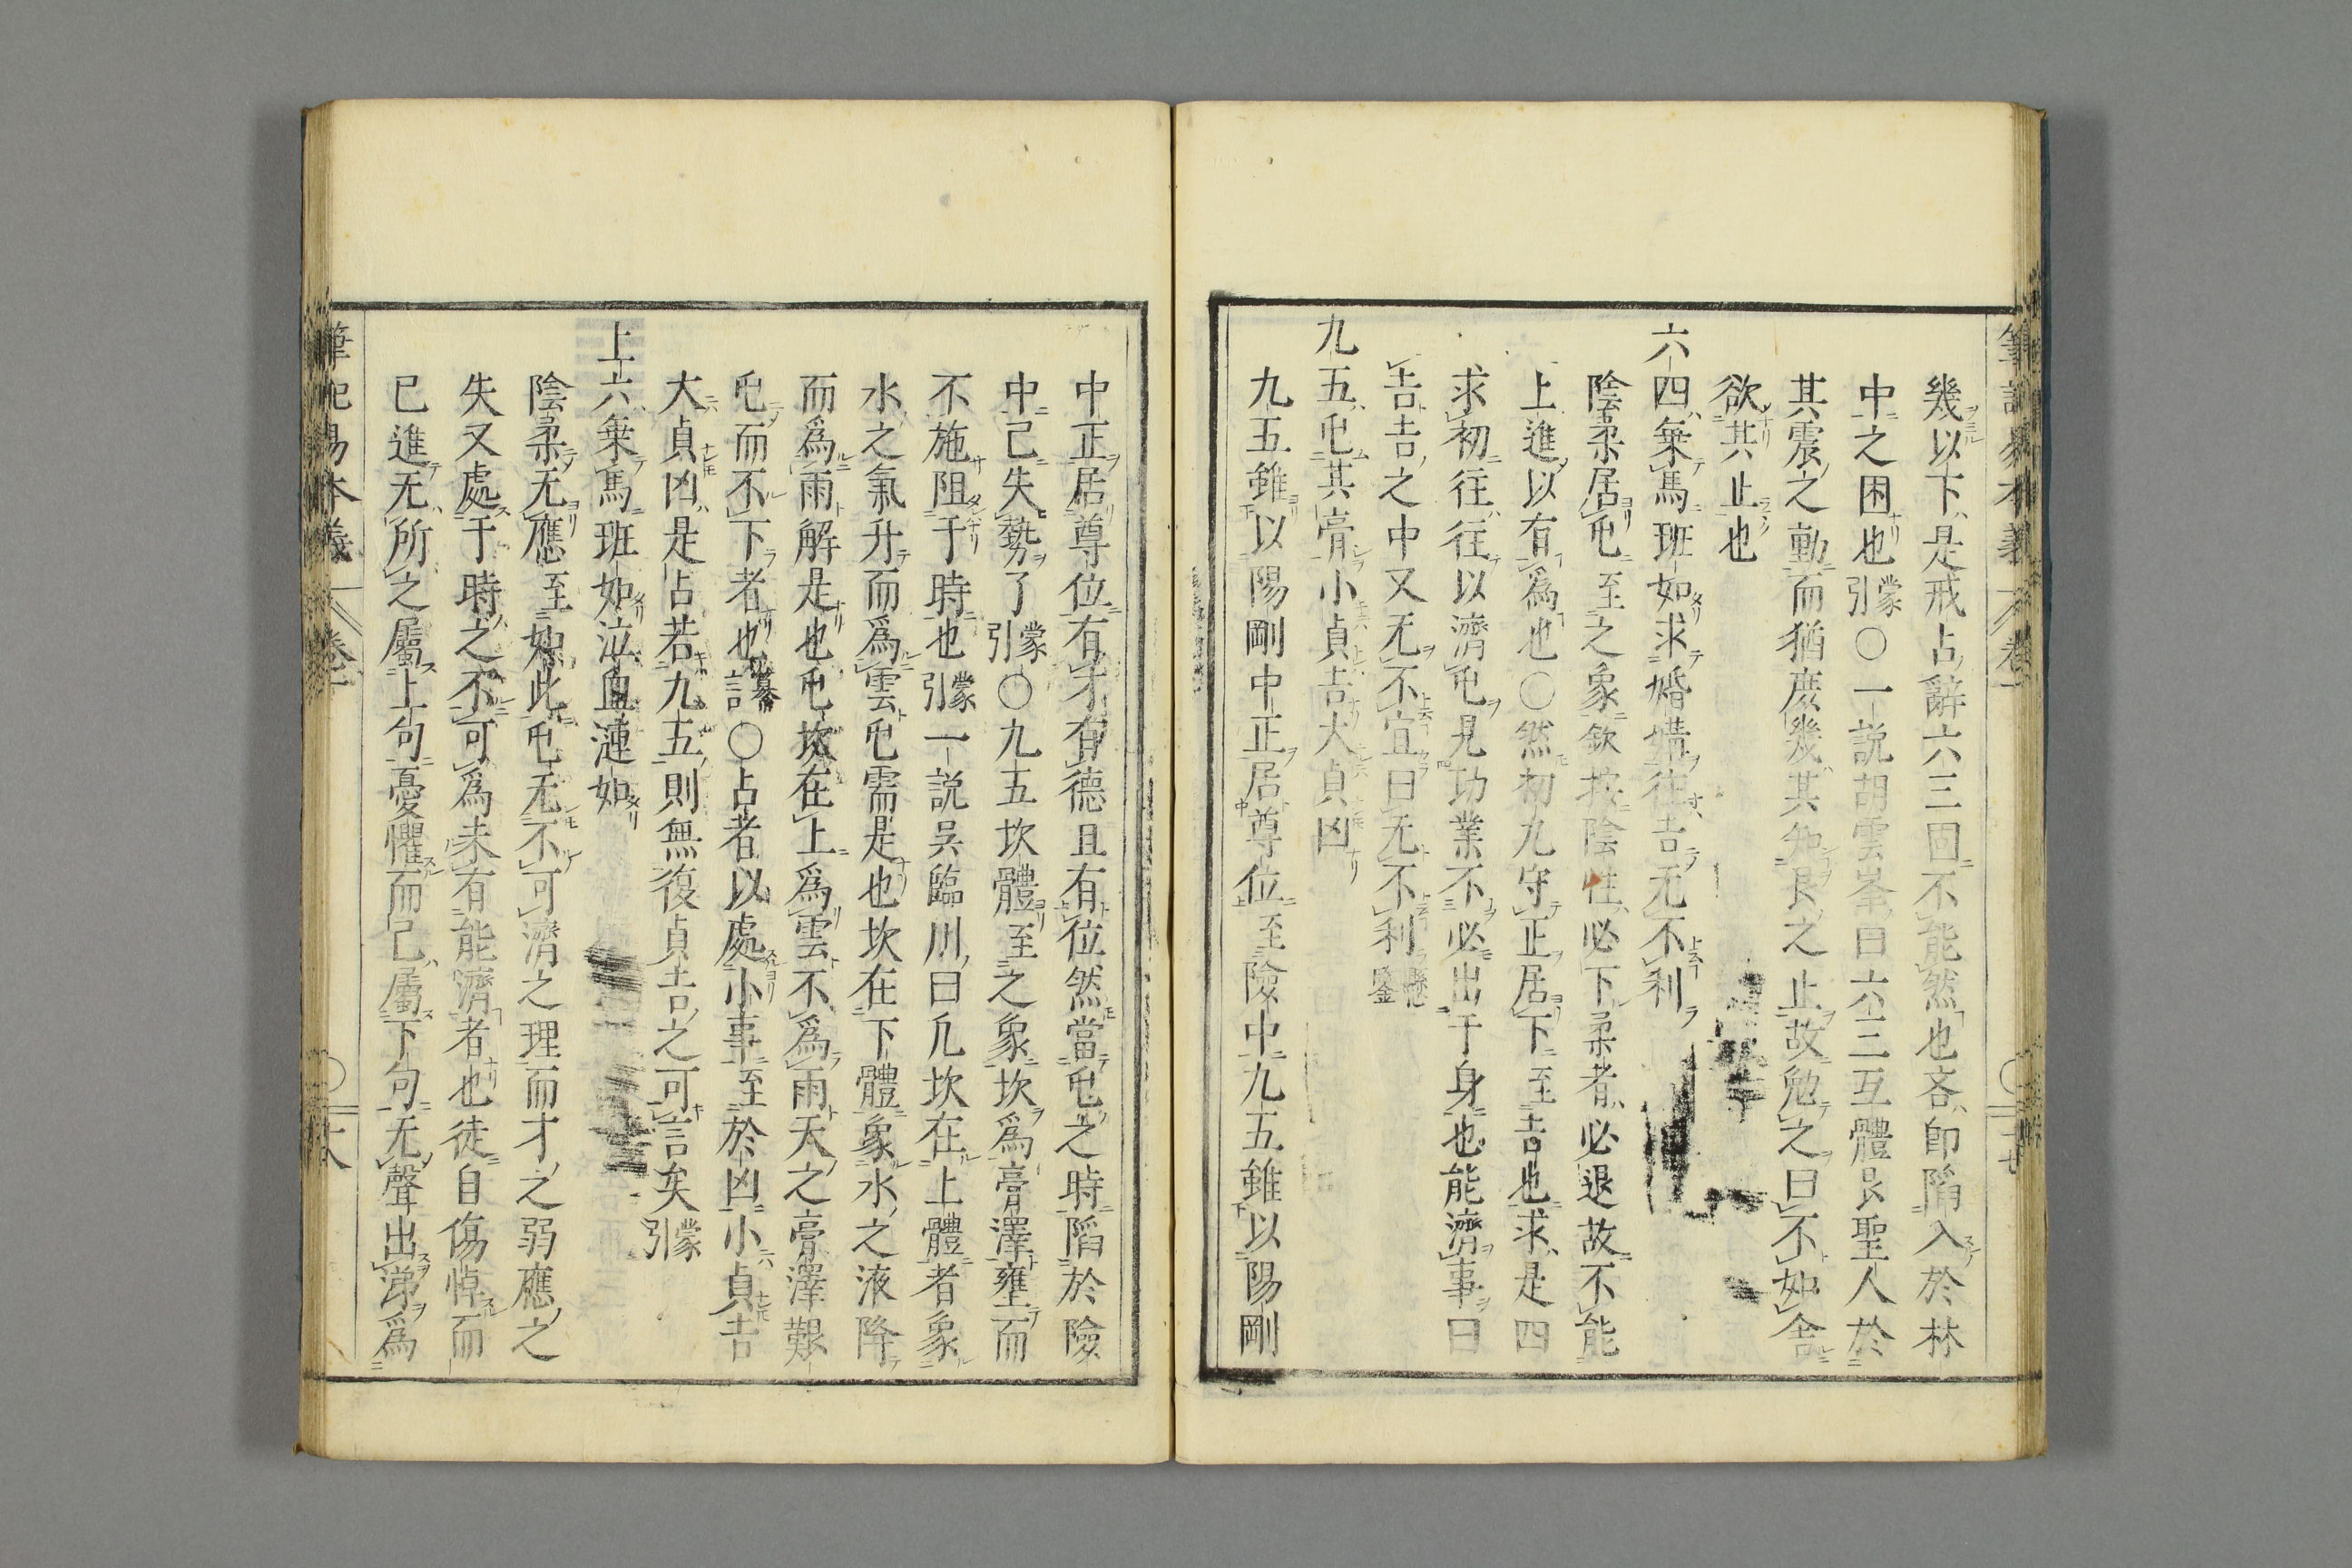 筆記易本義 卷一 十七
幾以下是戒占辭六三固不能然也吝卽陷入於林
中之困也蒙引○一說胡雲峯曰六三互體艮聖人於
其震之動而猶庶幾其知艮之止故勉之曰不如舍
欲其止也
六四乗馬班如求婚媾往吉无不利
陰柔居屯至之象欽按陰性必下柔者必退故不能
上進以有爲也○然初九守正居下至吉也求是四
求初往往以濟屯見功業不必出于身也能濟事曰
吉吉之中又无不宜曰无不利
九五屯其膏小貞吉大貞凶
九五雖以陽剛中正居尊位至險中九五雖以陽剛
中正居尊位有才有德且有位然當屯之時陷於險
中己失勢了蒙引○九五坎體至之象坎爲膏澤壅而
不施阻于時也蒙引一說吳臨川曰凢坎在上體者象
水之氣升而爲雲屯需是也坎在下體象水之液降
而爲雨解是也屯坎在上爲雲不爲雨天之膏澤艱
屯而不下者也纂註○占者以處小事至於凶小貞吉
大貞凶是占若九五則無復貞吉之可言矣蒙引
上六乗馬班如泣血漣如
陰柔无應至如此屯无不可濟之理而才之弱應之
失又處于時之不可爲未有能濟者也徒自傷悼而
已進无所之屬上句憂懼而已屬下句无聲出涕爲
筆記易本義 卷一 十八